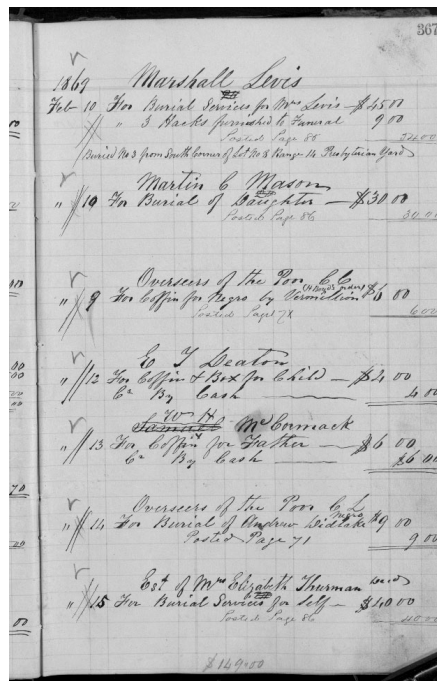 367
1869 Marshall Levis
Feb 10 For Burial Services for Mrs Levis — $45 00
" " 3 Hacks furnished to Funeral 9 00
Posted Page 85 54 00
(Buried No 3 from South Corner of Lot No 8 Range 14 Presbyterian Yard)
Martin C Mason
" 10 For Burial of Daughter — $30 00
Posted Page 86 30 00
Overseers of the Poor C C
" 9 For Coffin for Negro by Vermillion $6 00
Posted Page 71 6 00
E T Deaton
" 12 For Coffin & Box for Child — $4 00
Cr By Cash 4 00
Wm H
Samuel McCormack
" 13 For Coffin for Father — $6 00
Cr By Cash $6 00
Overseers of the Poor C L
Negro
" 14 For Burial of Andrew $9 00
Posted Page 71 9 00
Est of Mrs Elizabeth Thurman Decd
" 15 For Burial Services for Self — $40 00
Posted Page 86 40 00
$149.00